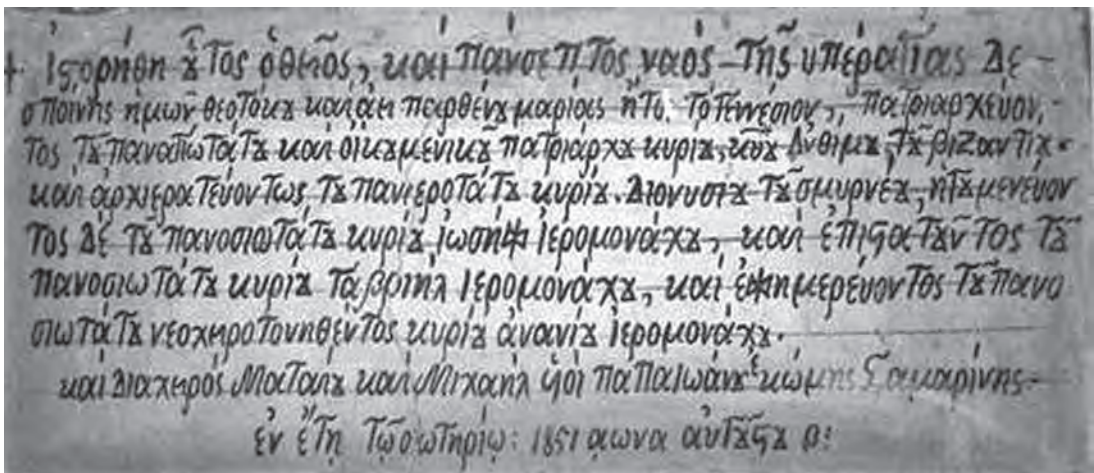 + Ἱστορήθη ȣ̓τος ὁ θεῖος, καὶ πάνσεπτος ναὸς τῆς ὑπεραγίας Δε-
σποίνης ἡμῶν θεοτόκȣ καὶ ἀει παρθένȣ μαρίας ἤτοι τὸ Γεννέσιον, πατριαρχεύον-
τος τȣ͂ παναγιωτάτȣ καὶ οἰκȣμενικȣ͂ πατριάρχȣ κυρίȣ, κυρίȣ Ἀνθίμȣ, τȣ͂ βιζαντίȣ
καὶ ἀρχιερατεύοντως τȣ͂ πανιεροτάτȣ κυρίȣ. Διονυσίȣ τȣ͂ σμυρνέȣ, ἡγȣμενέυον
τος δὲ τȣ͂ πανοσιωτάτȣ κυρίȣ ἰωσὴφ ἱερομονάχȣ, καὶ ἐπιστατȣ͂ντος τȣ͂
πανοσιωτάτȣ κυρίȣ Γαβριὴλ ἱερομονάχȣ, καὶ ἐφημερέυοντος τȣ͂ πανο
σιωτάτȣ νεοχηροτονηθέντος κυρίȣ ἀνανίȣ ἱερομονάχȣ.
καὶ διαχηρὸς Ματαίȣ καὶ Μιχαὴλ ὑιοὶ παπαϊωάνȣ ἐκ κώμης Σαμαρίνης-
ἐν ἔτη τῷ σωτηρίῳ: 1851